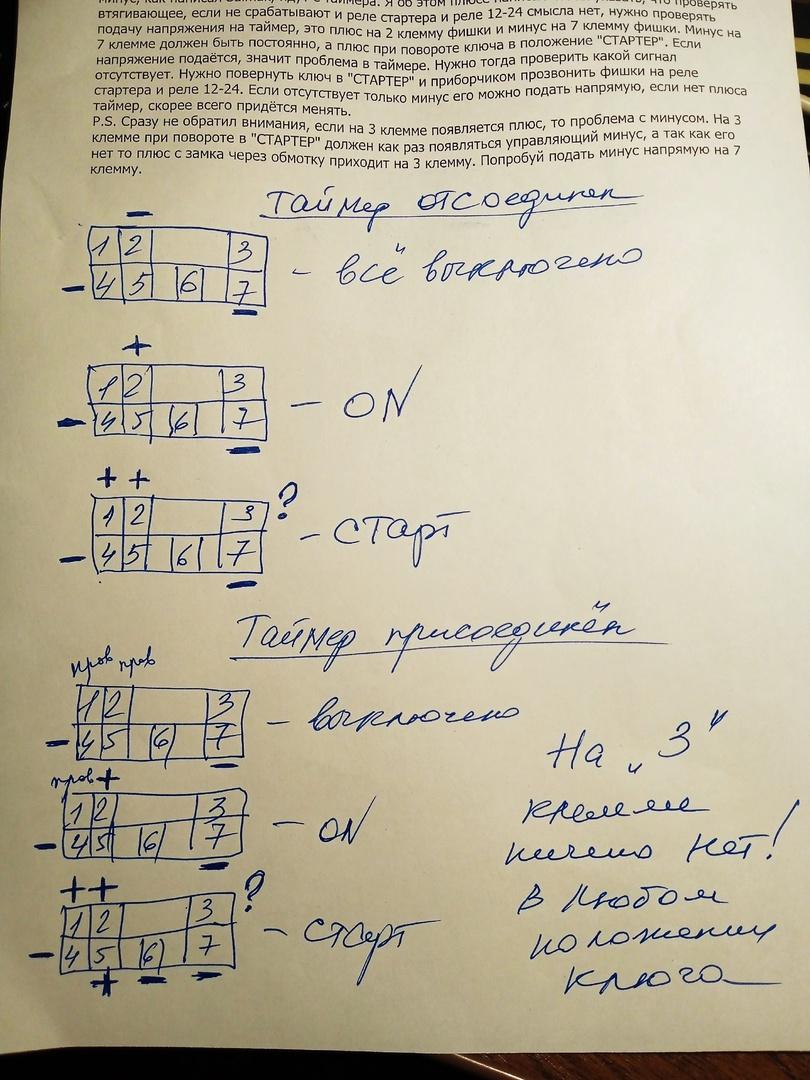 втягивающее, если не срабатывают и реле стартера и реле 12-24 смысла нет, нужно проверять
подачу напряжения на таймер, это плюс на 2 клемму фишки и минус на 7 клемму фишки. Минус на
7 клемме должен быть постоянно, а плюс при повороте ключа в положение "СТАРТЕР". Если
напряжение подаётся, значит проблема в таймере. Нужно тогда проверить какой сигнал
отсутствует. Нужно повернуть ключ в "СТАРТЕР" и приборчиком прозвонить фишки на реле
стартера и реле 12-24. Если отсутствует только минус его можно подать напрямую, если нет плюса
таймер, скорее всего придётся менять.
P.S. Сразу не обратил внимания, если на 3 клемме появляется плюс, то проблема с минусом. На 3
клемме при повороте в "СТАРТЕР" должен как раз появляться управляющий минус, а так как его
нет то плюс с замка через обмотку приходит на 3 клемму. Попробуй подать минус напрямую на 7
клемму.
Таймер отсоединен
−
1 2 3
− 4 5 6 7 − всё выключено
−
+
1 2 3
− 4 5 6 7 − ON
−
+ +
1 2 3 ?
− 4 5 6 7 − СТАРТ
−
Таймер присоединён
пров пров
1 2 3
− 4 5 6 7 − выключено
−
пров +
1 2 3
− 4 5 6 7 − ON
−
+ +
1 2 3 ?
− 4 5 6 7 − СТАРТ
+ − −
На „3"
клемме
ничего нет!
В любом
положении
ключа